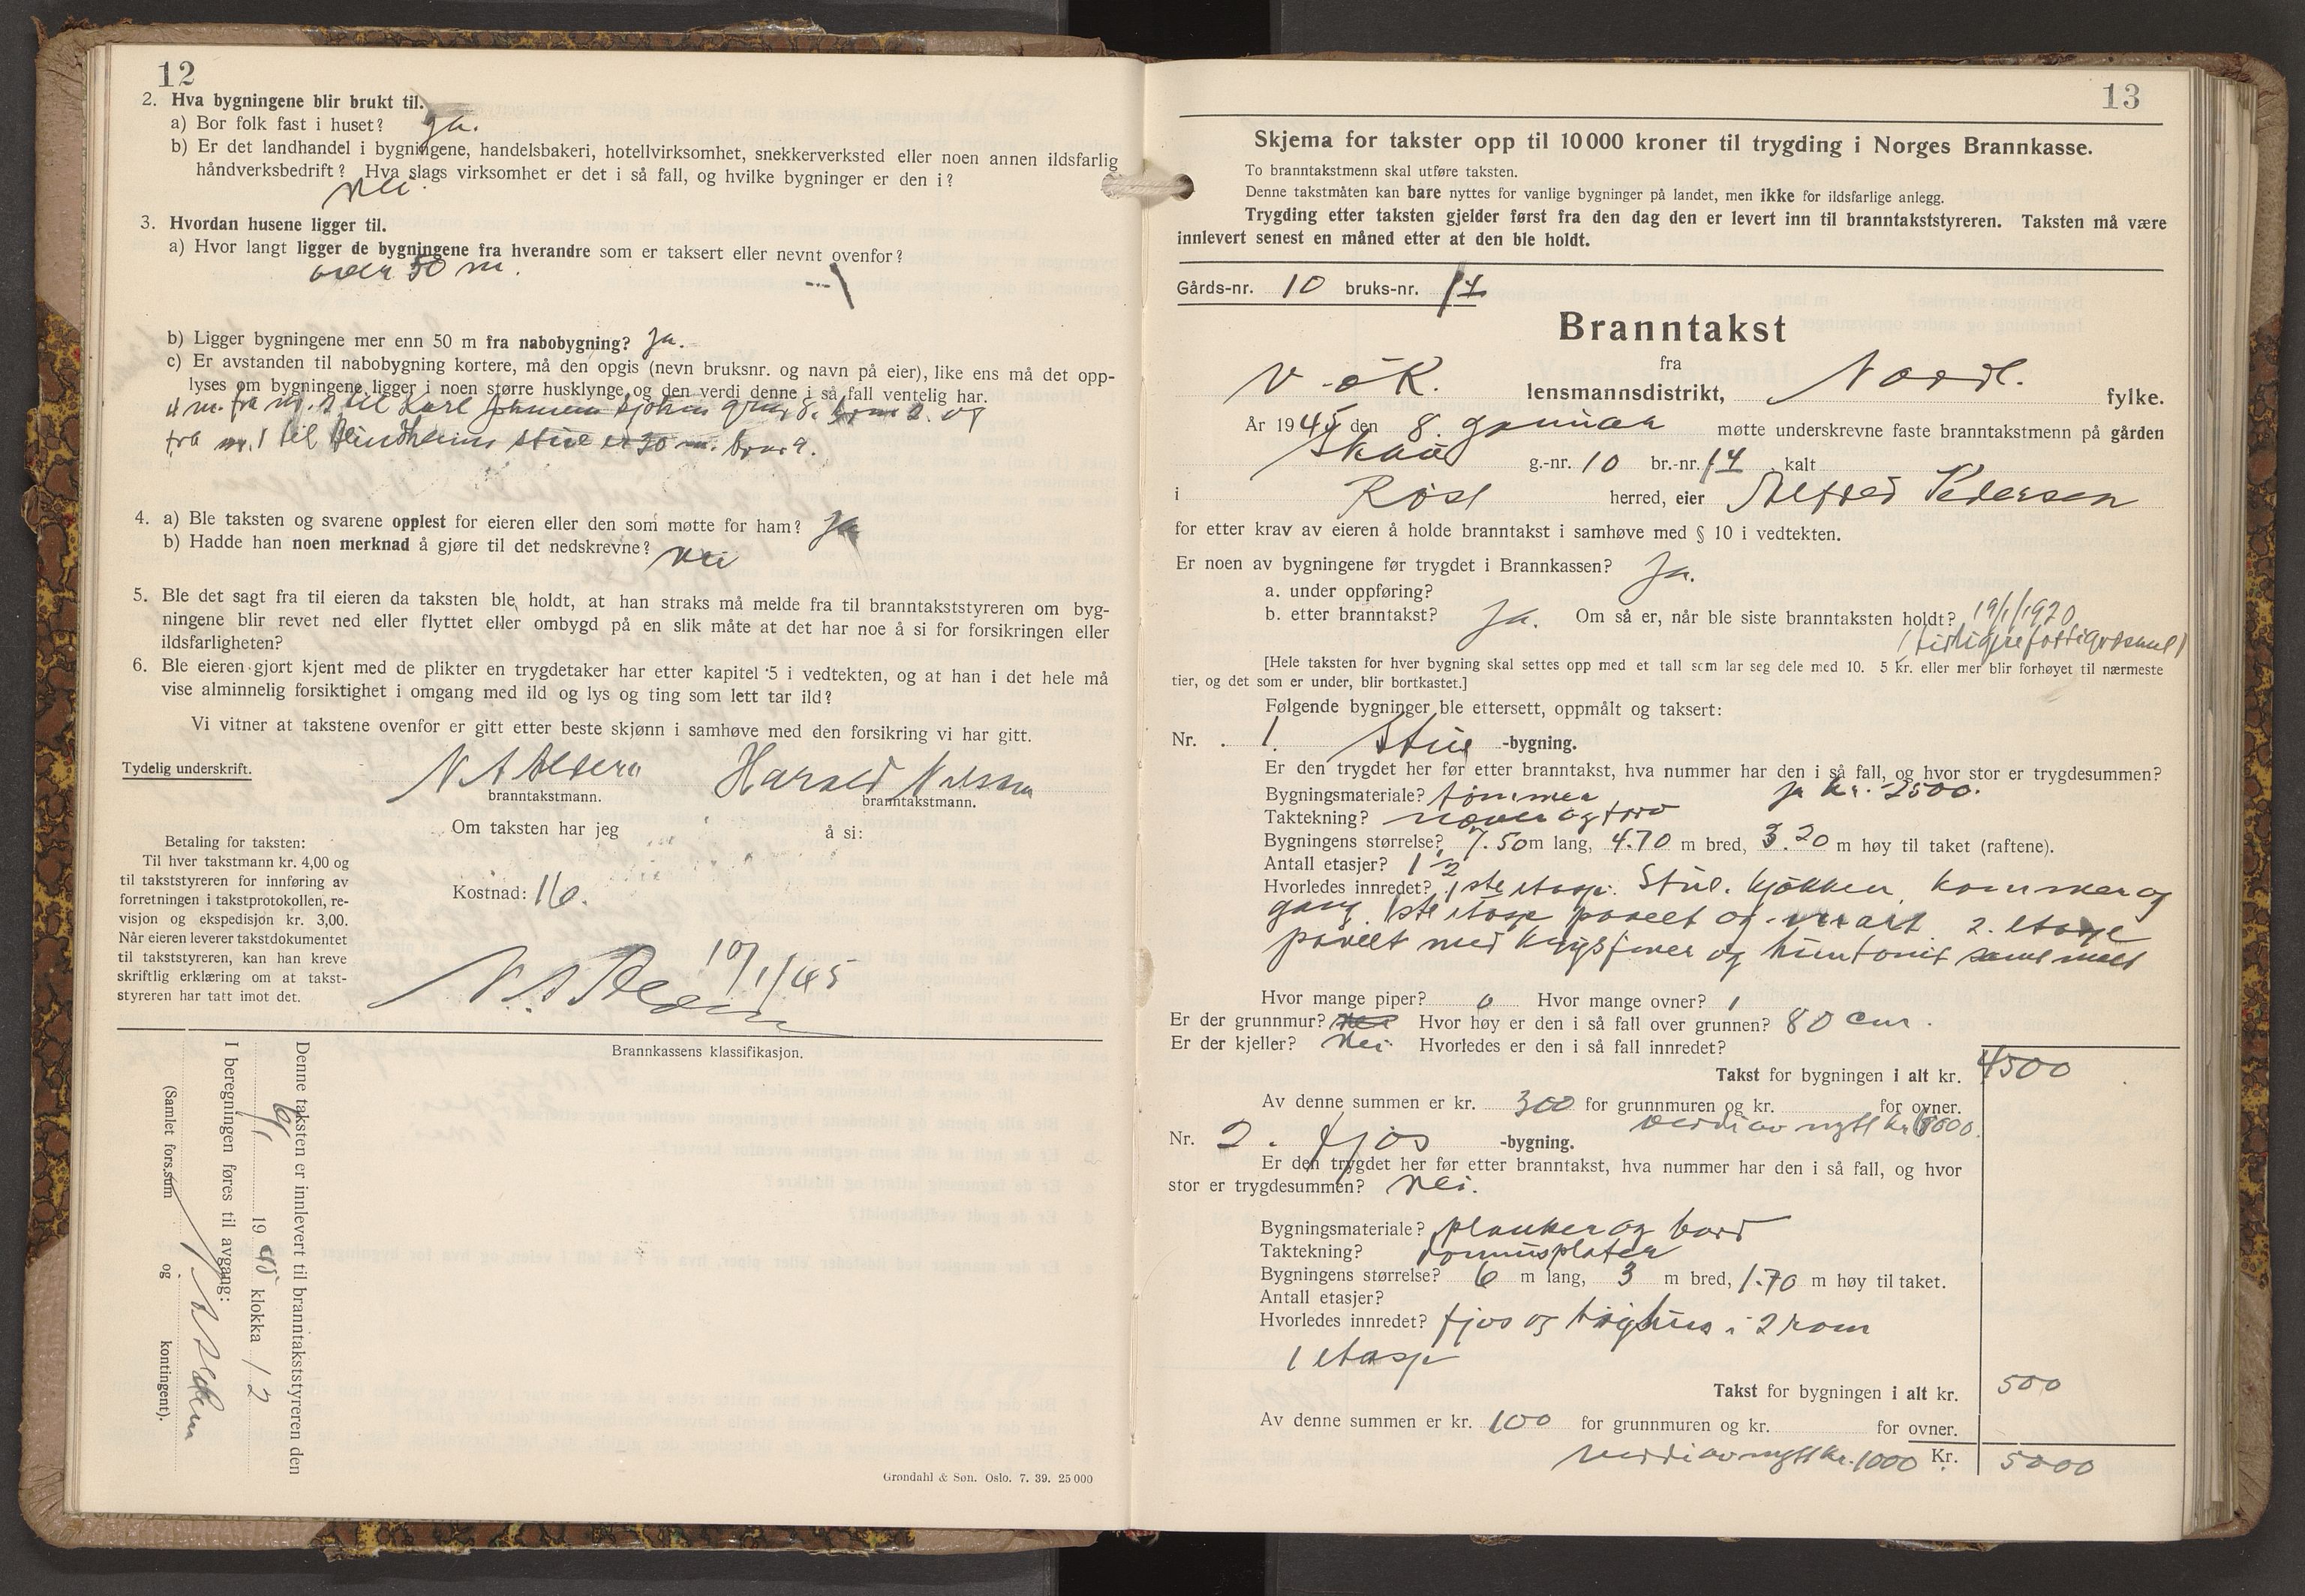 12
2. Hva bygningene blir brukt til.
a) Bor folk fast i huset? ja.
b) Er det landhandel i bygningene, handelsbakeri, hotellvirksomhet, snekkerverksted eller noen annen ildsfarlig
håndverksbedrift? Hva slags virksomhet er det i så fall, og hvilke bygninger er den i?
nei.
3. Hvordan husene ligger til.
a) Hvor langt ligger de bygningene fra hverandre som er taksert eller nevnt ovenfor?
over 50 m.
b) Ligger bygningene mer enn 50 m fra nabobygning? Ja.
c) Er avstanden til nabobygning kortere, må den opgis (nevn bruksnr. og navn på eier), like ens må det opp-
lyses om bygningene ligger i noen større husklynge og den verdi denne i så fall ventelig har.
4 m. fra nr. 2 til Karl Johnsens fjøs 2. og
fra nr. 1 til stue er 30 m. 9.
4. a) Ble taksten og svarene opplest for eieren eller den som møtte for ham? Ja
b) Hadde han noen merknad å gjøre til det nedskrevne? nei
5. Ble det sagt fra til eieren da taksten ble holdt, at han straks må melde fra til branntakststyreren om byg-
ningene blir revet ned eller flyttet eller ombygd på en slik måte at det har noe å si for forsikringen eller
ildsfarligheten?
6. Ble eieren gjort kjent med de plikter en trygdetaker har etter kapitel 5 i vedtekten, og at han i det hele må
vise alminnelig forsiktighet i omgang med ild og lys og ting som lett tar ild?
Vi vitner at takstene ovenfor er gitt etter beste skjønn i samhøve med den forsikring vi har gitt.
Tydelig underskrift.
N A Harald Nilsen
branntakstmann. branntakstmann.
Om taksten har jeg å si:
Betaling for taksten:
Til hver takstmann kr. 4,00 og
til takststyreren for innføring av
forretningen i takstprotokollen, re-
visjon og ekspedisjon kr. 3,00.
Når eieren leverer takstdokumentet
til takststyreren, kan han kreve
skriftlig erklæring om at takst-
styreren har tatt imot det.
Kostnad: 16.
10/1/45
N. A
Brannkassens klassifikasjon.
Denne taksten er innlevert til branntakststyreren den
9/1 1945 klokka 12
I beregningen føres til avgang:
(Samlet fors.sum og kontingent).
Grøndahl & Søn. Oslo. 7. 39. 25 000
13
Skjema for takster opp til 10 000 kroner til trygding i Norges Brannkasse.
To branntakstmenn skal utføre taksten.
Denne takstmåten kan bare nyttes for vanlige bygninger på landet, men ikke for ildsfarlige anlegg.
Trygding etter taksten gjelder først fra den dag den er levert inn til branntakststyreren. Taksten må være
innlevert senest en måned etter at den ble holdt.
Gårds-nr. 10 bruks-nr. 14
Branntakst
fra
V-øk. lensmannsdistrikt, Nordl. fylke.
År 1945 den 8. januar møtte underskrevne faste branntakstmenn på gården
g.-nr. 10 br.-nr. 14 kalt
i Røst herred, eier Alfred Pedersen
for etter krav av eieren å holde branntakst i samhøve med § 10 i vedtekten.
Er noen av bygningene før trygdet i Brannkassen? Ja.
a. under oppføring?
b. etter branntakst? Ja. Om så er, når ble siste branntaksten holdt? 19/1/1920
[Hele taksten for hver bygning skal settes opp med et tall som lar seg dele med 10. 5 kr. eller mer blir forhøyet til nærmeste
tier, og det som er under, blir bortkastet.]
Følgende bygninger ble ettersett, oppmålt og taksert:
Nr. 1. Stue -bygning.
Er den trygdet her før etter branntakst, hva nummer har den i så fall, og hvor stor er trygdesummen?
Bygningsmateriale? tømmer ja kr. 2500.
Taktekning? never og torv
Bygningens størrelse? 7.50 m lang, 4.70 m bred, 3.20 m høy til taket (raftene).
Antall etasjer? 1 1/2
Hvorledes innredet? 1ste etasje. Stue. kjøkken, kammer og
gang. 1ste etasje panelt og malt. 2. etasje
panelt med og huntonit samt malt
Hvor mange piper? 0 Hvor mange ovner? 1
Er der grunnmur? nei Hvor høy er den i så fall over grunnen? 80 cm.
Er der kjeller? Nei. Hvorledes er den i så fall innredet?
Takst for bygningen i alt kr. 4500
Av denne summen er kr. 300 for grunnmuren og kr. for ovner.
verdi av nytt kr. 8000.
Nr. 2. fjøs -bygning.
Er den trygdet her før etter branntakst, hva nummer har den i så fall, og hvor
stor er trygdesummen? Nei.
Bygningsmateriale? planker og bord
Taktekning? domusplater
Bygningens størrelse? 6 m lang, 3 m bred, 1.70 m høy til taket.
Antall etasjer?
Hvorledes innredet? fjøs og i 2 rom
1 etasje
Takst for bygningen i alt kr. 500
Av denne summen er kr. 100 for grunnmuren og kr. for ovner.
verdi av nytt kr. 1000 Kr. 5000